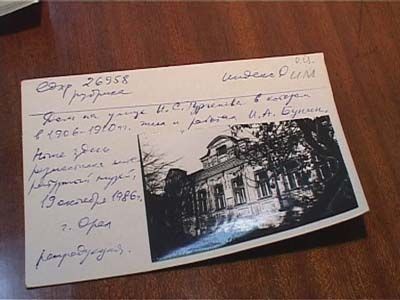 О.И.
сдхр 26958 индекс ИМ
рубрика
Дом на улице И. С. Тургенева в котором
в 1906-1910 гг. жил и работал И. А. Бунин.
Ныне здесь
музей,
19 октября 1986 г.
г. Орел
репродукция.